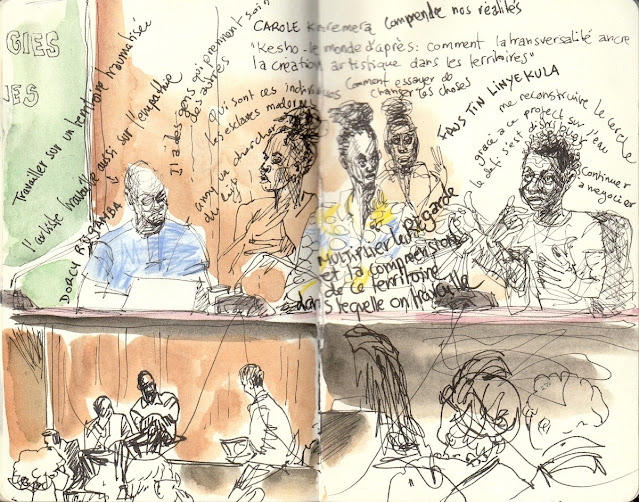 GIES
NES
CAROLE KAREMERA comprendre nos réalités
"Kesho - le monde d'après: comment la transversalité ancre
la création artistique dans les territoires"
Comment essayer de
changer les choses
Travailler sur un territoire traumatisé
l'artiste travaille aussi sur l'empathie
DORCY RUGAMBA
Il a des gens qui prennent soin
des autres
Qui sont ces individus
les esclaves modernes
on va chercher
FAUSTIN LINYEKULA
me reconstruire le cercle
grâce à ce project sur l'eau
le defi s'est
Continuer
a negocier
Multiplier le regarde
et la comprehension
de ce territoire
dans
lequelle on travaille